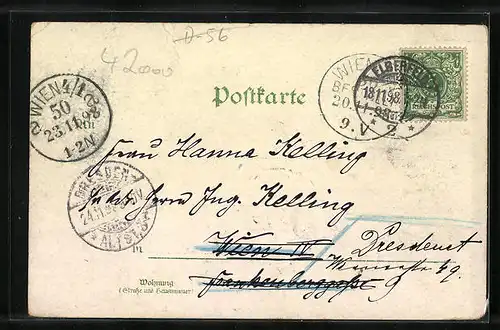 D-56
42000
Postkarte
WIEN 4/1
50
23.11.98
1-2N
WIEN
20.
9.V
ELBERFELD
18.11.98
REICHSPOST
DRESDEN
ALTST.
Frau Hanna Kelling
Herrn Ing. Kelling
Wien IV Dresden
Frankenberggasse 9 49.
Wohnung
(Straße und Hausnummer)